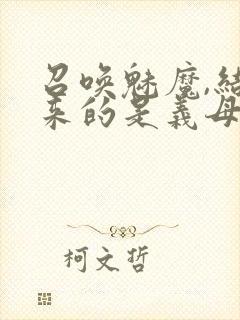 召唤魅魔,结
来的是義母
柯文哲